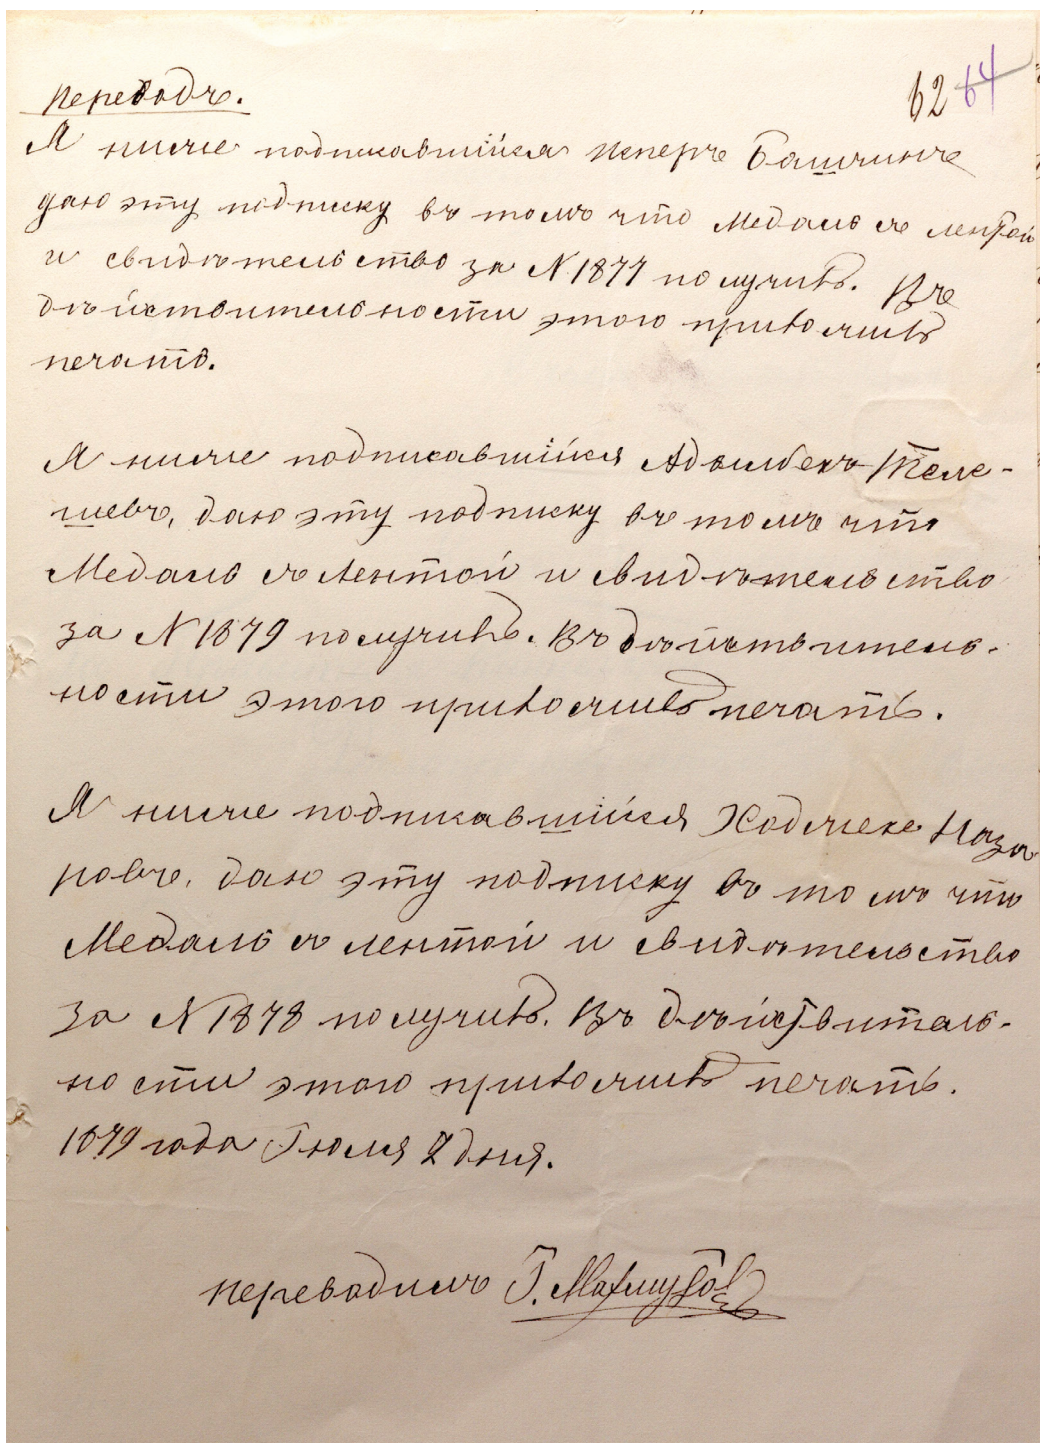 62 64
Переводъ.
Я ниже подписавшійся Исперъ Башчинъ
даю эту подписку въ томъ что Медаль съ лентой
и свидѣтельство за N 1877 получивъ. Въ
дѣйствительности этого приложивъ
печать.
Я ниже подписавшійся Адылбекъ Теле-
шевъ, даю эту подписку въ томъ что
Медаль съ лентой и свидѣтельство
за N 1879 получивъ. Въ дѣйствитель-
ности этого приложивъ печать.
Я ниже подписавшійся Ходжеке Наза
ровъ, даю эту подписку въ томъ что
Медаль съ лентой и свидѣтельство
за N 1878 получивъ. Въ дѣйствитель-
ности этого приложивъ печать.
1879 года Іюля 2 дня.
переводилъ Г. Махмудовъ